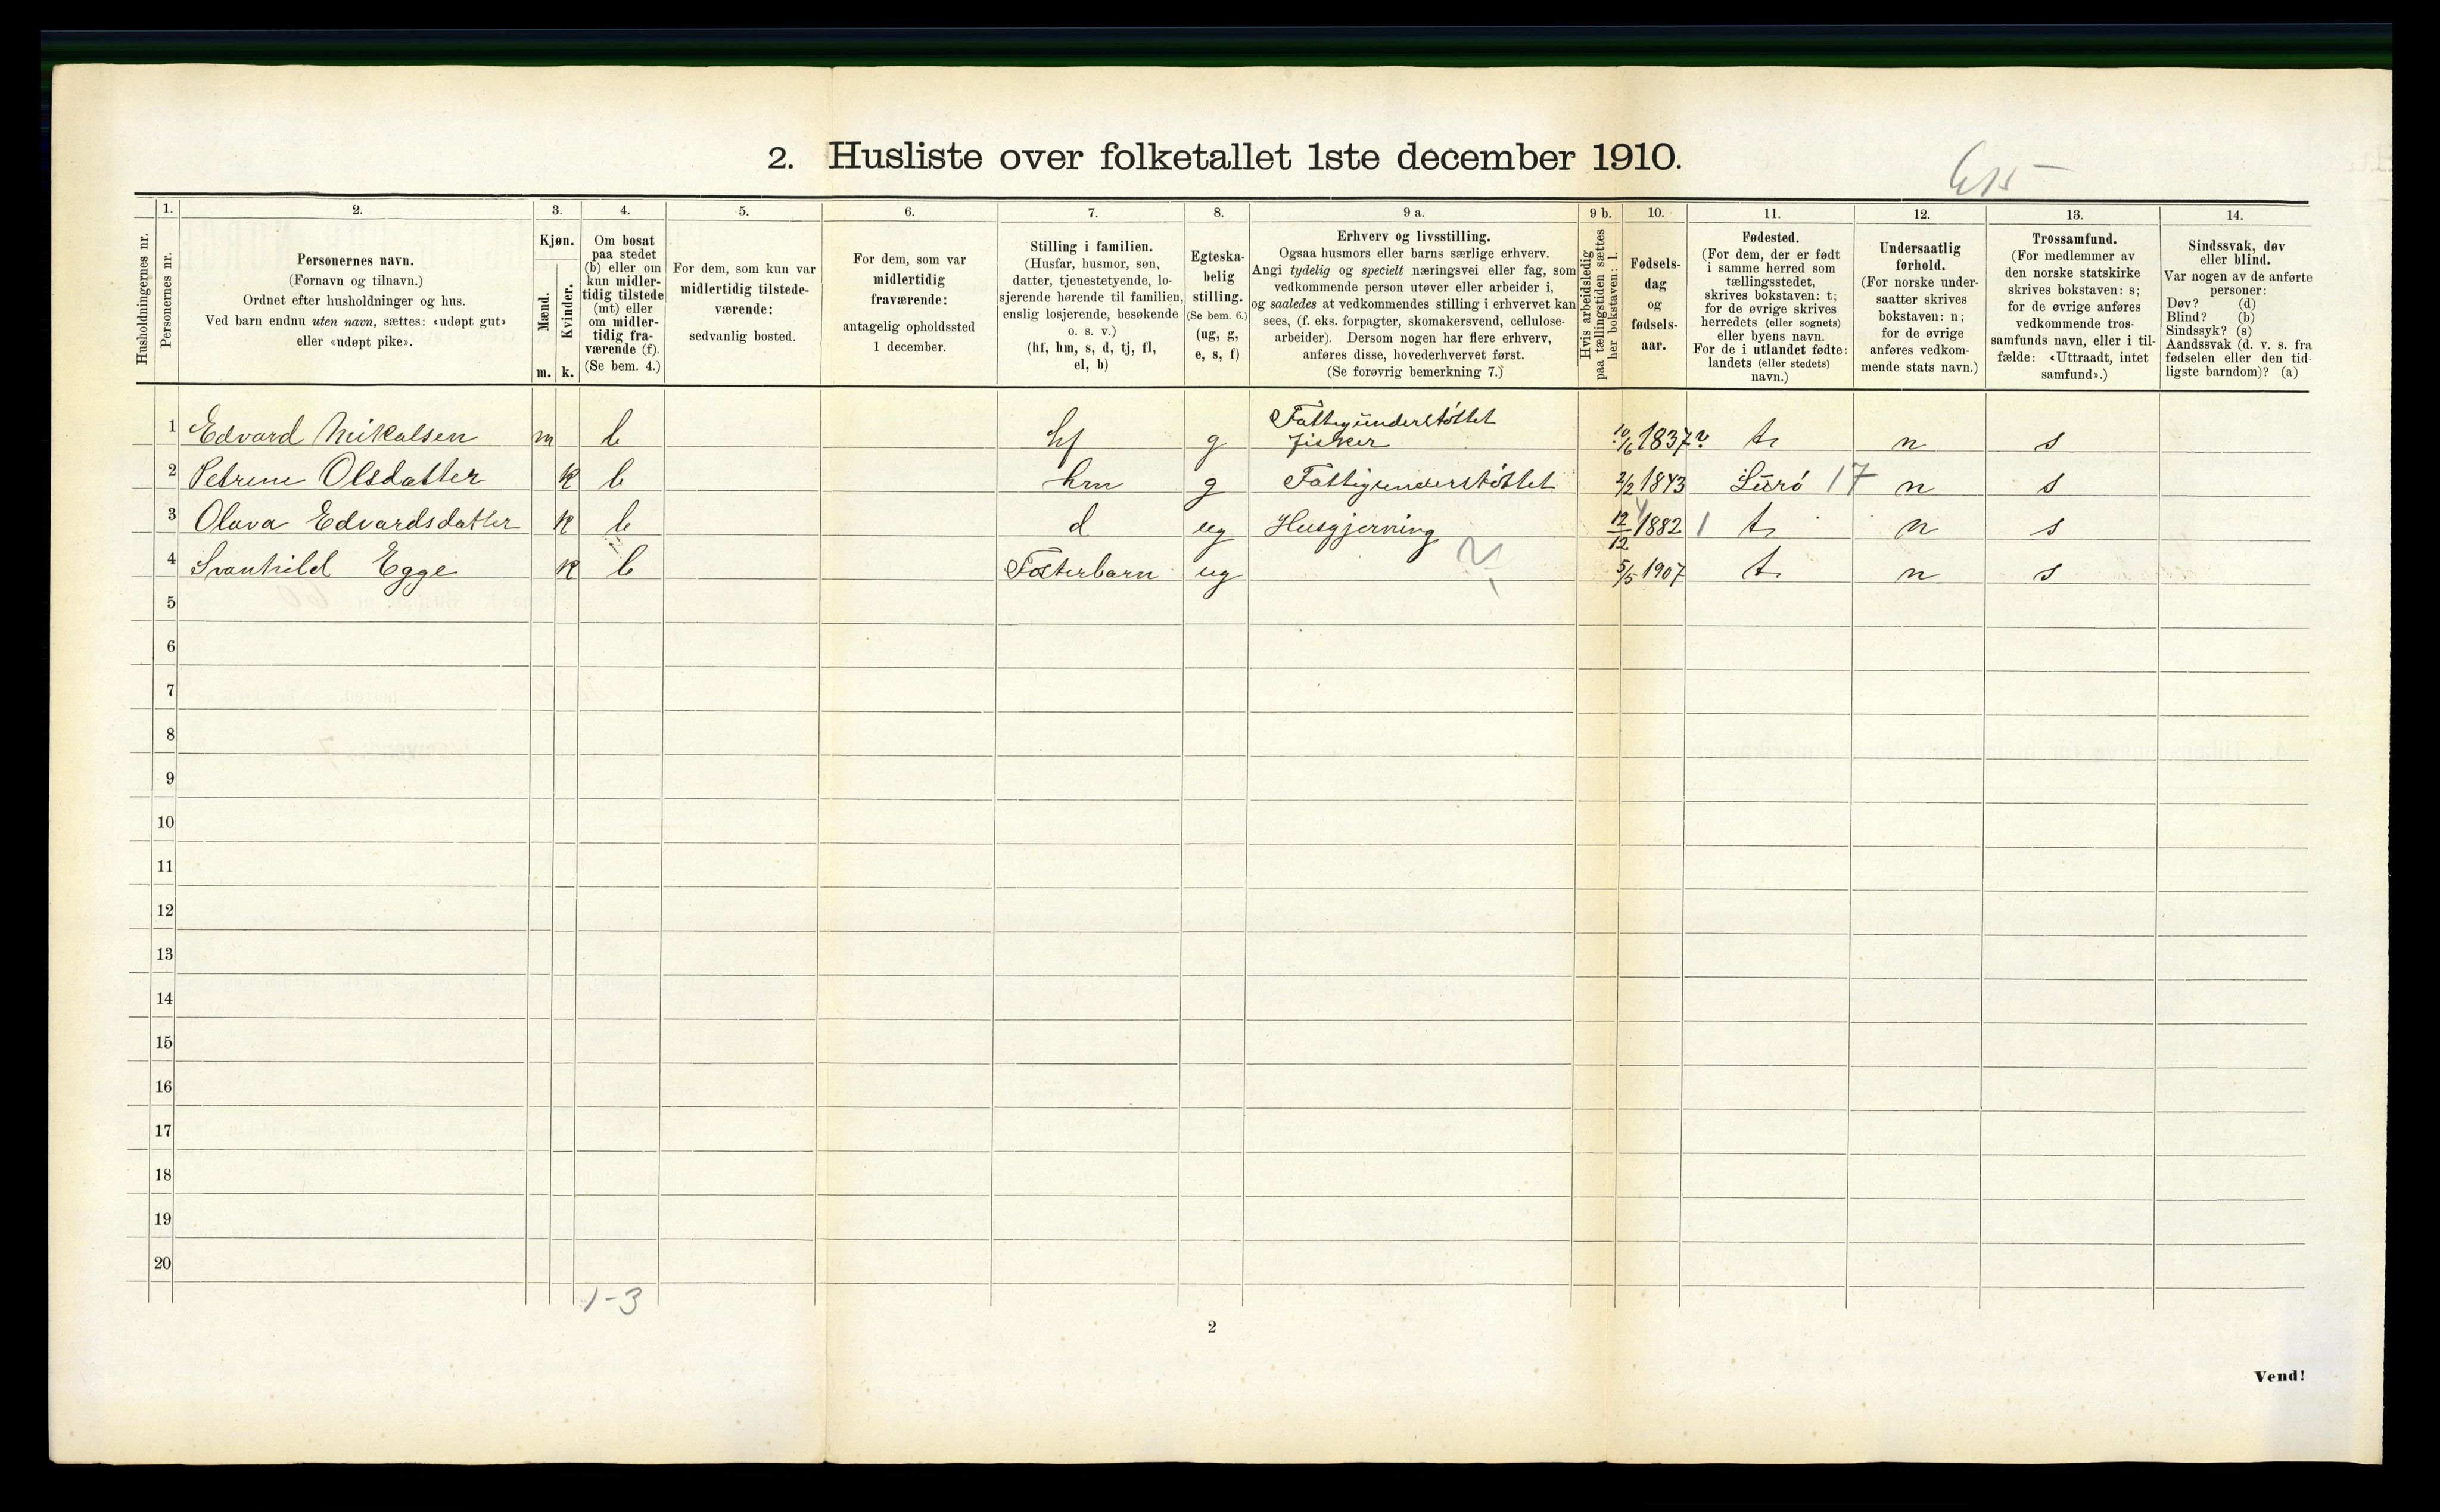 2. Husliste over folketallet 1ste december 1910.
Husholdningernes nr.
1.
Personernes nr.
2.
Personernes navn.
(Fornavn og tilnavn.)
Ordnet efter husholdninger og hus.
Ved barn endnu uten navn, sættes: «udøpt gut»
eller «udøpt pike».
3.
Kjøn.
Mænd.
Kvinder.
m. k.
4.
Om bosat
paa stedet
(b) eller om
kun midler-
tidig tilstede
(mt) eller
om midler-
tidig fra-
værende (f).
(Se bem. 4.)
5.
For dem, som kun var
midlertidig tilstede-
værende:
sedvanlig bosted.
6.
For dem, som var
midlertidig
fraværende:
antagelig opholdssted
1 december.
7.
Stilling i familien.
(Husfar, husmor, søn,
datter, tjenestetyende, lo-
sjerende hørende til familien,
enslig losjerende, besøkende
o. s. v.)
(hf, hm, s, d, tj, fl,
el, b)
8.
Egteska-
belig
stilling.
(Se bem. 6.)
(ug, g,
e, s, f)
9 a.
Erhverv og livsstilling.
Ogsaa husmors eller barns særlige erhverv.
Angi tydelig og specielt næringsvei eller fag, som
vedkommende person utøver eller arbeider i,
og saaledes at vedkommendes stilling i erhvervet kan
sees, (f. eks. forpagter, skomakersvend, cellulose-
arbeider). Dersom nogen har flere erhverv,
anføres disse, hovederhvervet først.
(Se forøvrig bemerkning 7.)
9 b.
Hvis arbeidsledig
paa tællingstiden sættes
her bokstaven: l.
10.
Fødsels-
dag
og
fødsels-
aar.
11.
Fødested.
(For dem, der er født
i samme herred som
tællingsstedet,
skrives bokstaven: t;
for de øvrige skrives
herredets (eller sognets)
eller byens navn.
For de i utlandet fødte:
landets (eller stedets)
navn.)
12.
Undersaatlig
forhold.
(For norske under-
saatter skrives
bokstaven: n;
for de øvrige
anføres vedkom-
mende stats navn.)
13.
Trossamfund.
(For medlemmer av
den norske statskirke
skrives bokstaven: s;
for de øvrige anføres
vedkommende tros-
samfunds navn, eller i til-
fælde: «Uttraadt, intet
samfund».)
14.
Sindssvak, døv
eller blind.
Var nogen av de anførte
personer:
Døv? (d)
Blind? (b)
Sindssyk? (s)
Aandssvak (d. v. s. fra
fødselen eller den tid-
ligste barndom)? (a)
1 Edvard Nikalsen m b hf g Fattigunderstøttet fisker 10/6 1837 ? t. n s
2 Petrine Olsdatter k b hm g Fattigunderstøttet 2/2 1843 Lurö 17 n s
3 Olava Edvardsdatter k b d ug Husgjerning 12/12 1882 1 t. n s
4 Svanhild Egge k b Fosterbarn ug 5/5 1907 t. n s
5
6
7
8
9
10
11
12
13
14
15
16
17
18
19
20
1-3
2
Vend!